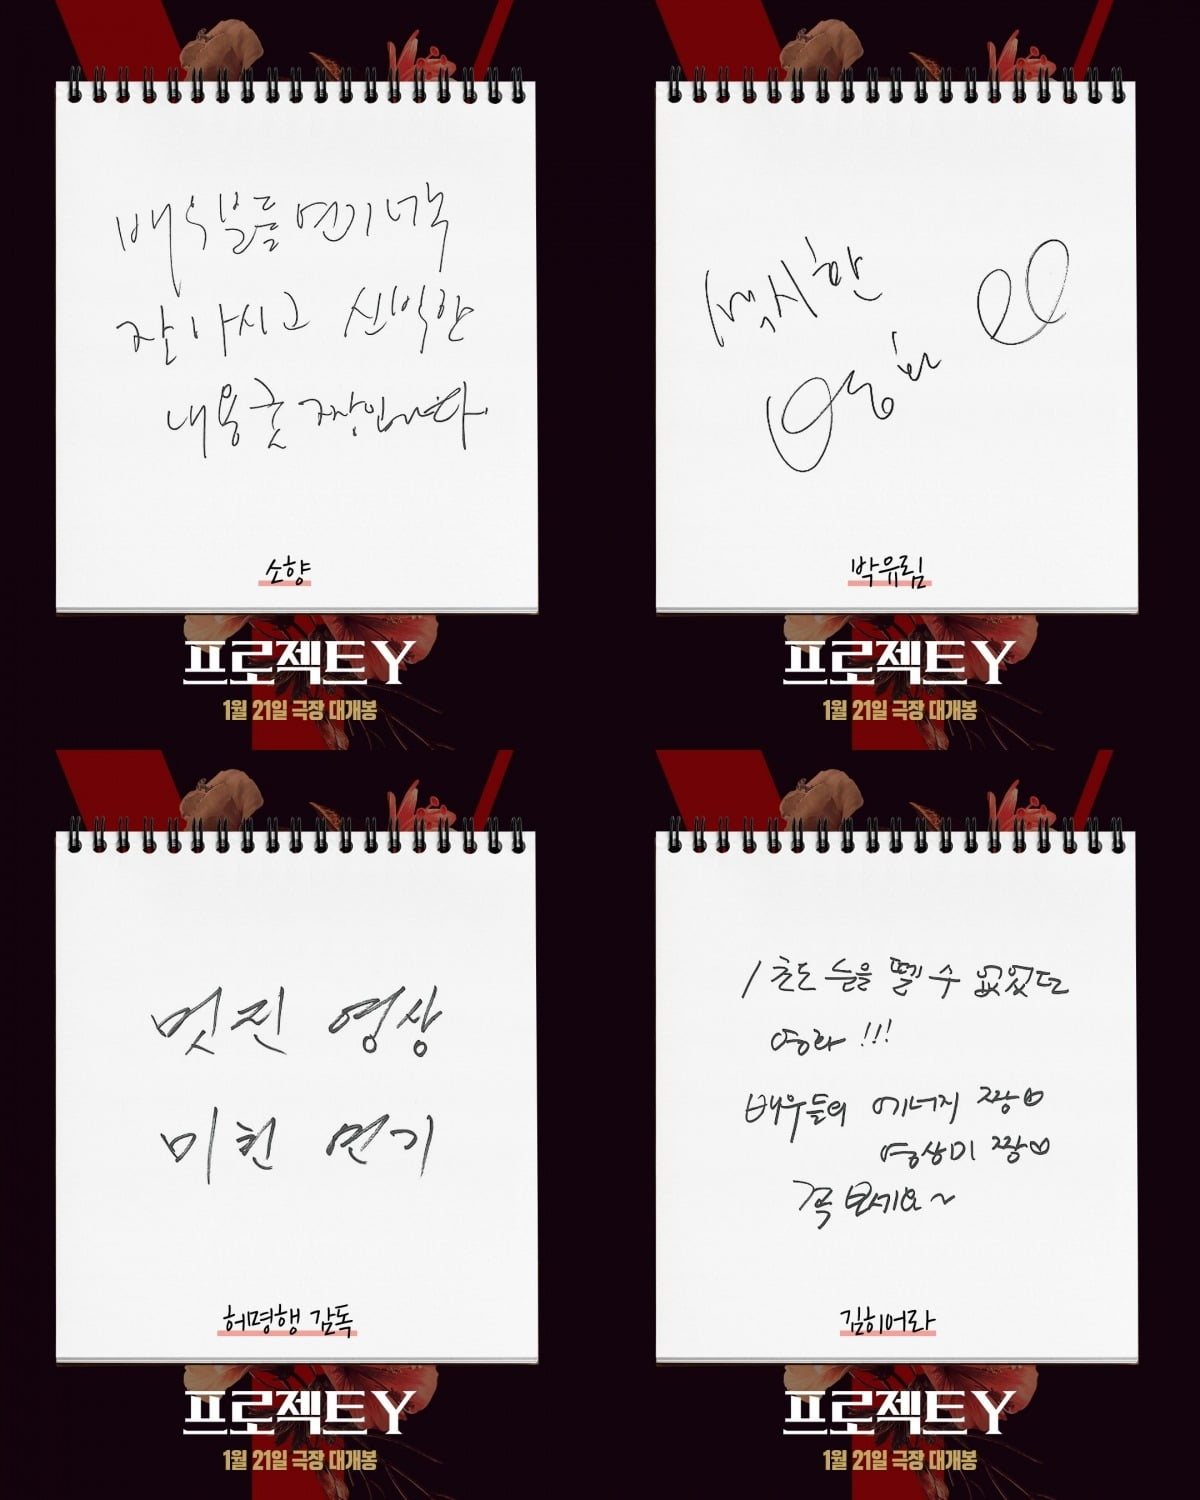 배우분들 연기 너무
잘 하시고 신박한
내용 굿 짱입니다.
소향
프로젝트 Y
1월 21일 극장 대개봉
섹시한
영화
박유림
프로젝트 Y
1월 21일 극장 대개봉
멋진 영상
미친 연기
허명행 감독
프로젝트 Y
1월 21일 극장 대개봉
1초도 눈을 뗄 수 없었던
영화!!!
배우들의 에너지 짱♡
영상미 짱♡
꼭 보세요~
김히어라
프로젝트 Y
1월 21일 극장 대개봉